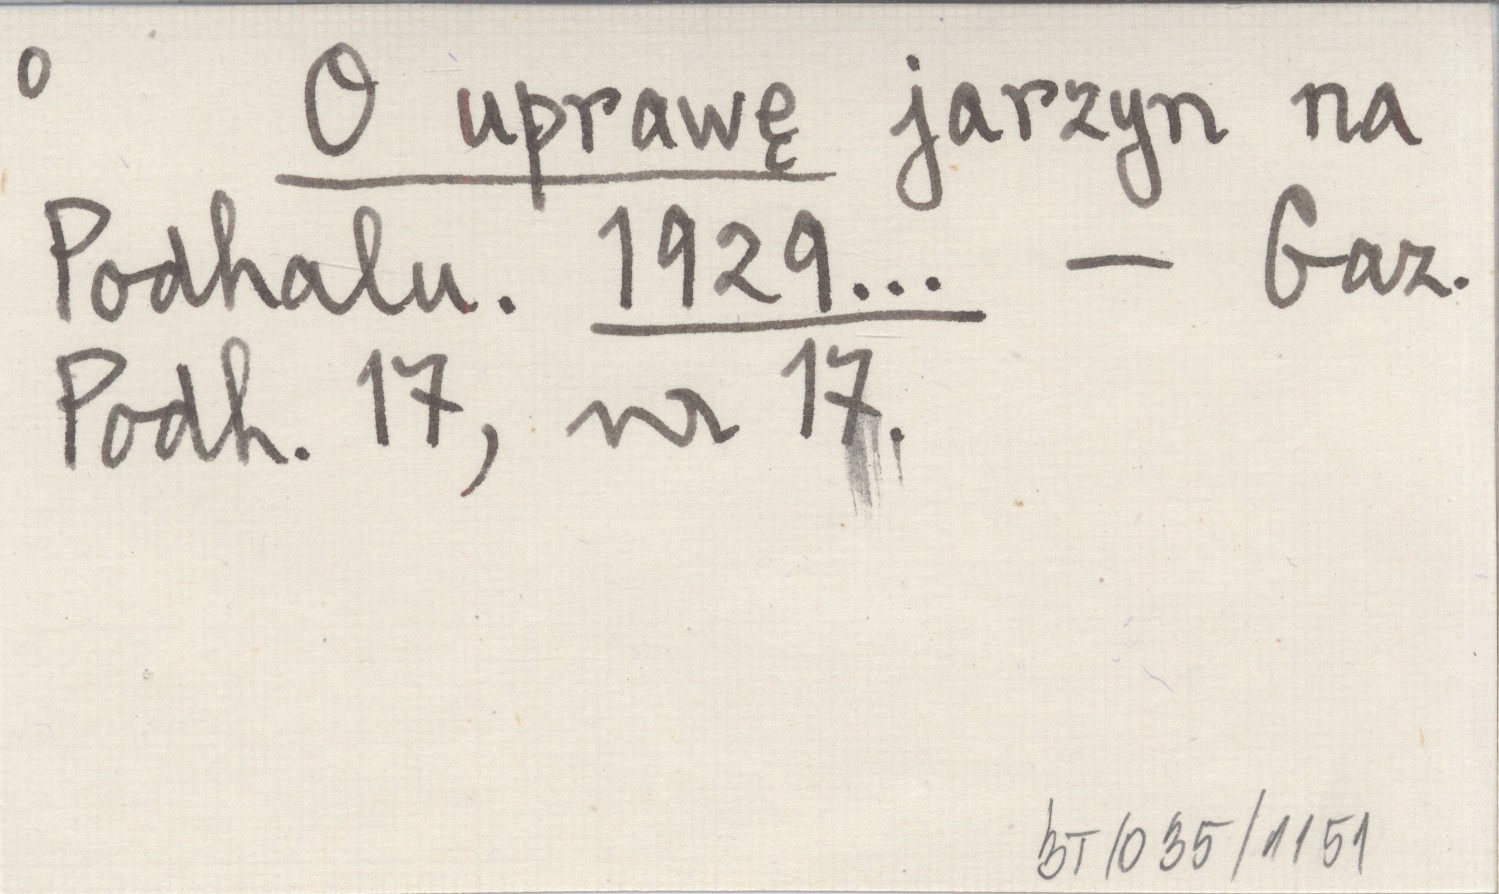 o O uprawę jarzyn na
Podhalu. 1929... — Gaz.
Podh. 17, nr 17.
BT/035/1151